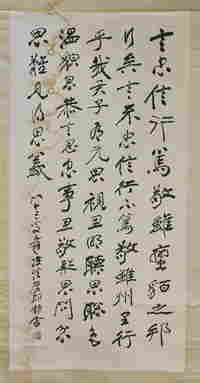 言忠信行篤敬雖蠻貊之邦
行矣言不忠信行不篤敬雖州里行
乎哉君子有九思視思明聽思聰色
溫貌思恭言思忠事思敬疑思問忿
思難見得思義